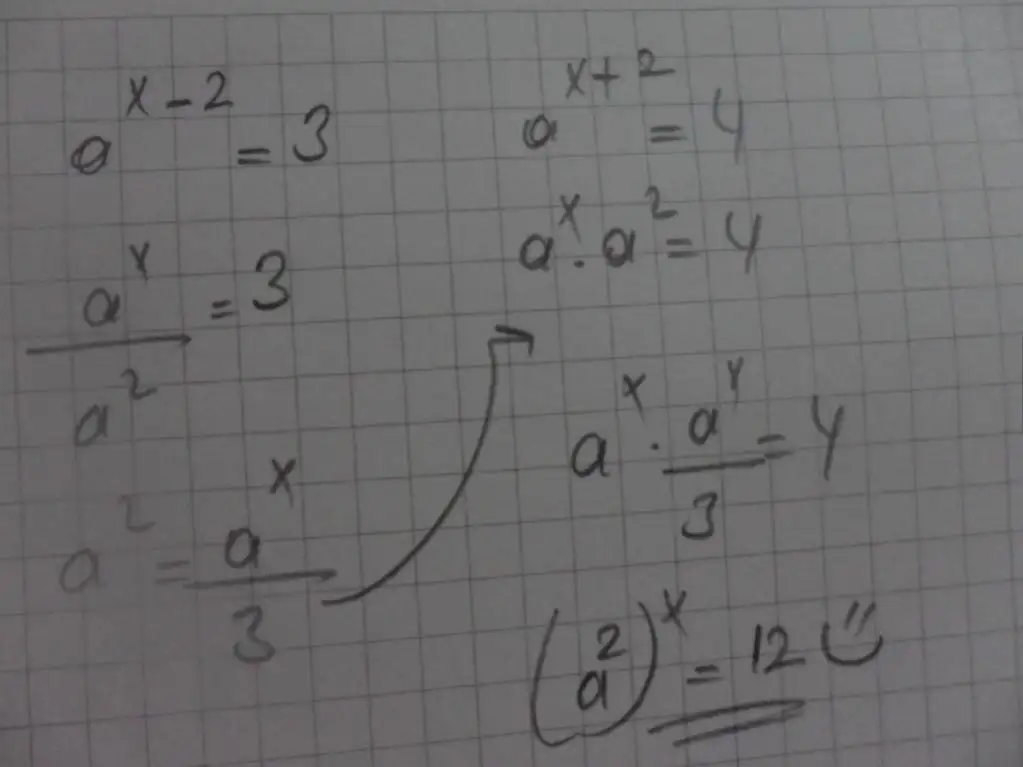 a^{x-2} = 3
a^x / a^2 = 3
a^2 = a^x / 3
a^{x+2} = 4
a^x . a^2 = 4
a^x . a^x / 3 = 4
(a^2)^x = 12